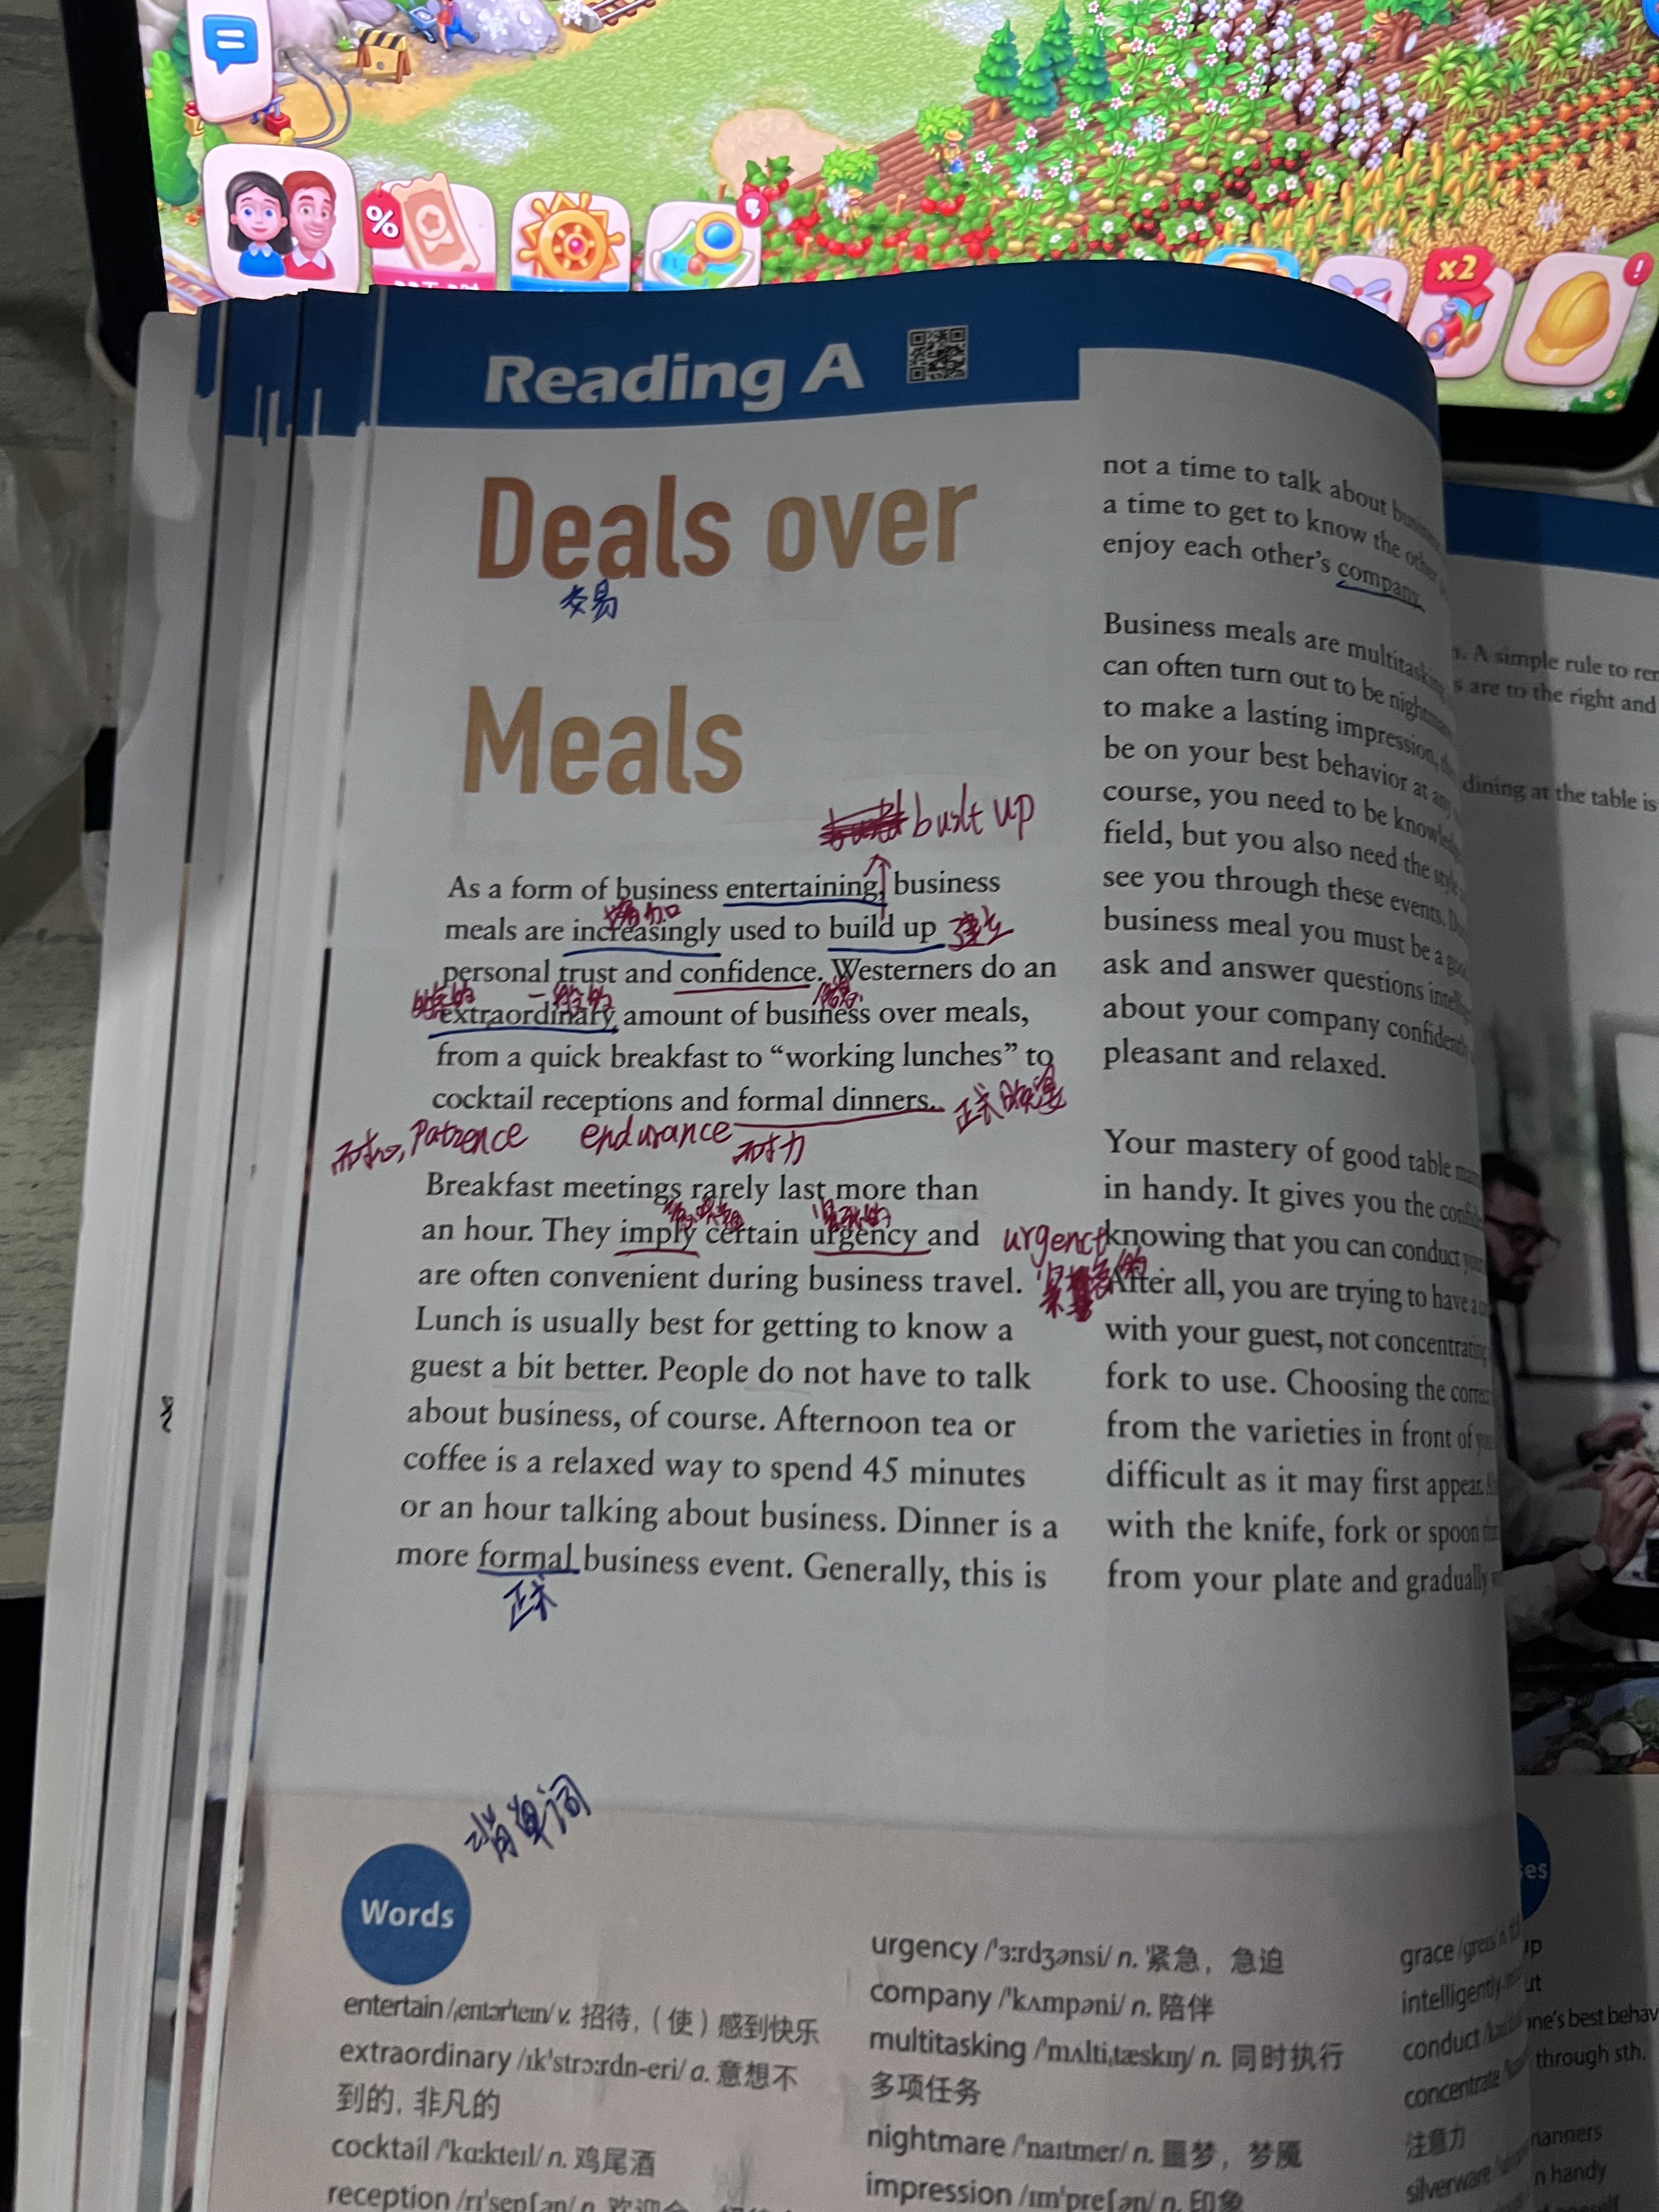 %
x2
!
Reading A
Deals over
交易
Meals
built up
As a form of business entertaining, business
增加
meals are increasingly used to build up 建立
personal trust and confidence. Westerners do an
extraordinary amount of business over meals,
from a quick breakfast to “working lunches” to
cocktail receptions and formal dinners. 正式晚宴
耐心, Patience endurance 耐力
Breakfast meetings rarely last more than
an hour. They imply certain urgency and
are often convenient during business travel.
Lunch is usually best for getting to know a
guest a bit better. People do not have to talk
about business, of course. Afternoon tea or
coffee is a relaxed way to spend 45 minutes
or an hour talking about business. Dinner is a
more formal business event. Generally, this is
正式
not a time to talk about
a time to get to know the other
enjoy each other's company.
Business meals are multitasking
can often turn out to be
to make a lasting impression,
be on your best behavior at
course, you need to be
field, but you also need the
see you through these events.
business meal you must be a
ask and answer questions
about your company
pleasant and relaxed.
Your mastery of good table
in handy. It gives you the
knowing that you can conduct
After all, you are trying to have a
with your guest, not concentrating
fork to use. Choosing the
from the varieties in front of
difficult as it may first appear.
with the knife, fork or spoon
from your plate and gradually
A simple rule to
are to the right and
dining at the table is
背单词
Words
entertain /ˌentərˈteɪn/ v. 招待,（使）感到快乐
extraordinary /ɪkˈstrɔːrdn-eri/ a. 意想不
到的, 非凡的
cocktail /ˈkɑːkteɪl/ n. 鸡尾酒
reception /rɪˈsepʃən/ n.
urgency /ˈɜːrdʒənsi/ n. 紧急，急迫
company /ˈkʌmpəni/ n. 陪伴
multitasking /ˈmʌltiˌtæskɪŋ/ n. 同时执行
多项任务
nightmare /ˈnaɪtmer/ n. 噩梦，梦魇
impression /ɪmˈpreʃən/ n. 印象
grace
intelligently
conduct
concentrate
注意力
silverware
one's best behav
through sth.
manners
n handy